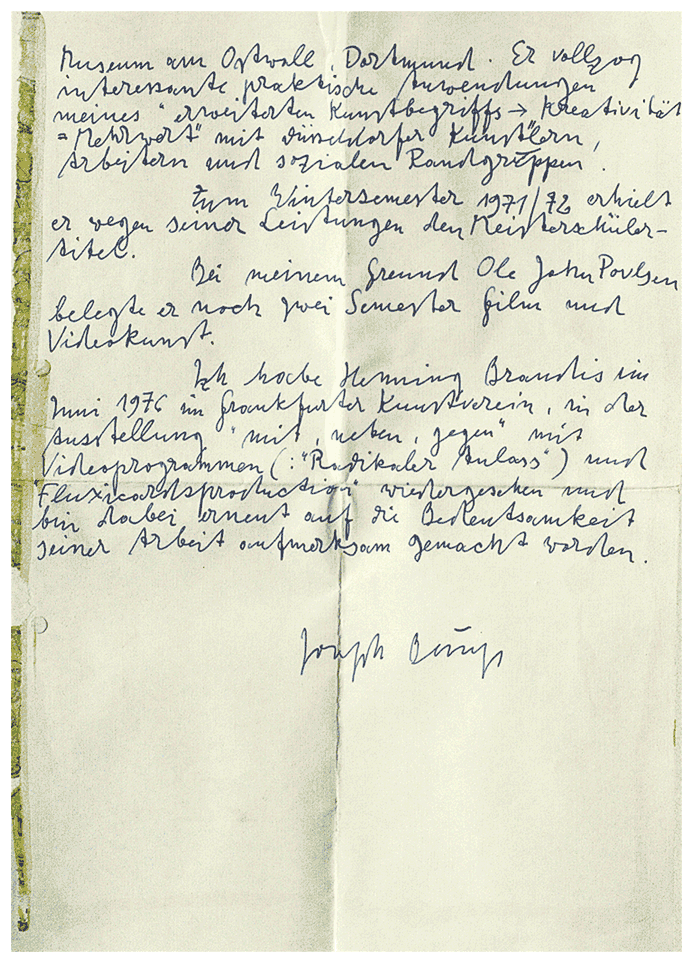 Museum am Ostwall, Dortmund. Er vollzog
interessante praktische Anwendungen
meines "erweiterten Kunstbegriffs → Kreativität
= Mehrwert" mit düsseldorfer Künstlern,
Arbeitern und sozialen Randgruppen.
Zum Wintersemester 1971/72 erhielt
er wegen seiner Leistungen den Meisterschüler-
titel.
Bei meinem Freund Ole John Povlsen
belegte er noch zwei Semester Film und
Videokunst.
Ich habe Henning Brandis im
Juni 1976 im Frankfurter Kunstverein, in der
Ausstellung "mit, neben, gegen" mit
Videoprogrammen (: "Radikaler Anlass") und
"Fluxicardsproduction" wiedergesehen und
bin dabei erneut auf die Bedeutsamkeit
seiner Arbeit aufmerksam gemacht worden.
Joseph Beuys